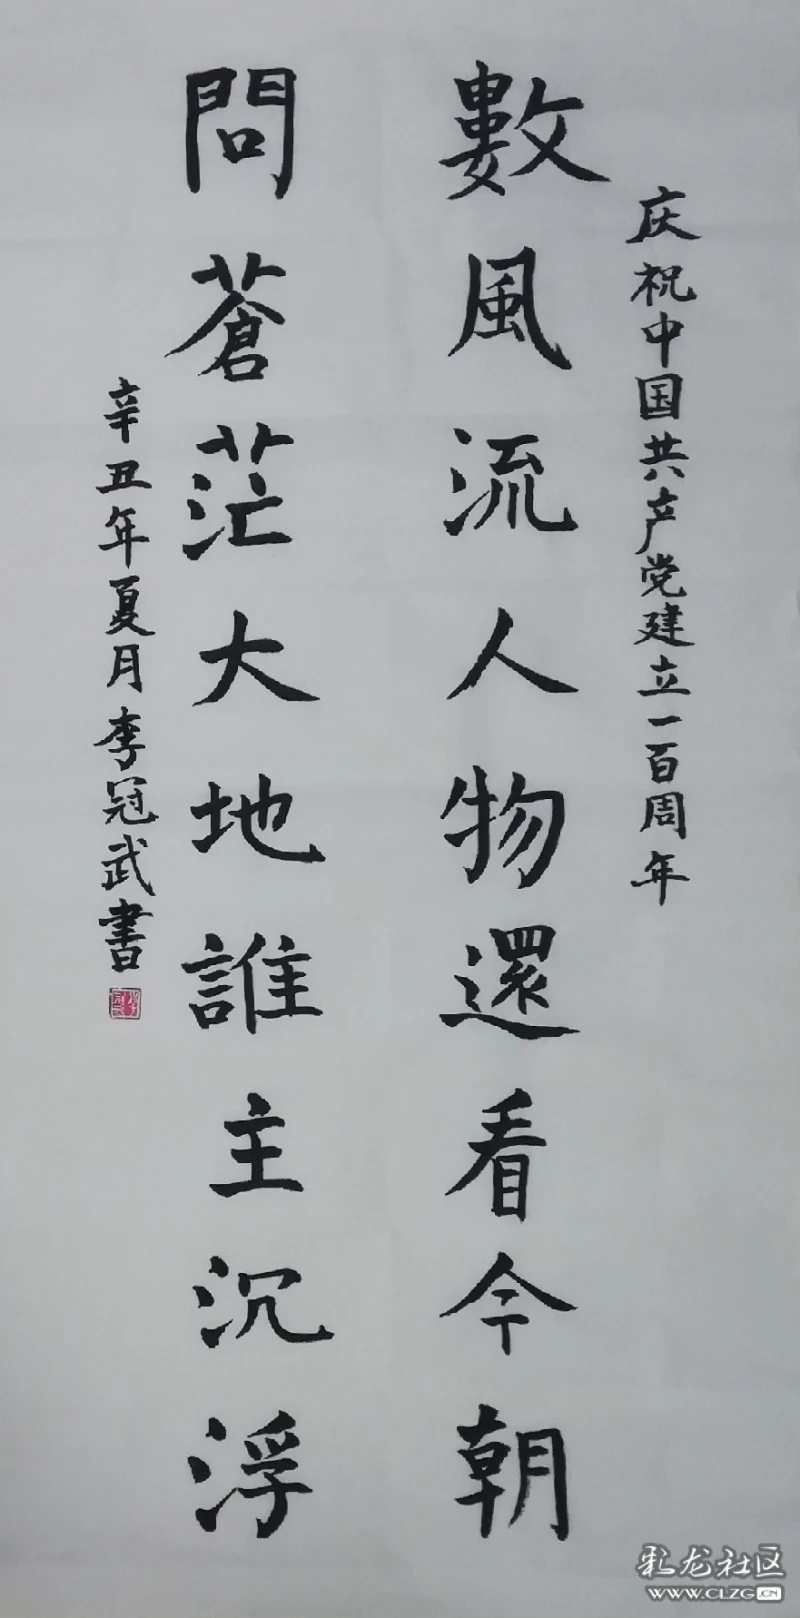 庆祝中国共产党建立一百周年
數風流人物還看今朝
問蒼茫大地誰主沉浮
辛丑年夏月李冠武書
彩龙社区
WWW.CLZG.CN